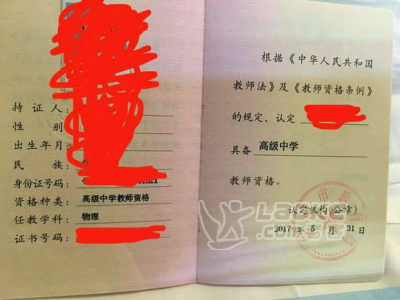 持 证 人:
性 别
出生年月
民 族
身份证号码:
资格种类: 高级中学教师资格
任教学科: 物理
证书号码:
根据《中华人民共和国
教师法》及《教师资格条例》
的规定, 认定
具备 高级中学
教师资格。
认定机构(公章)
2017 年 5 月 31 日